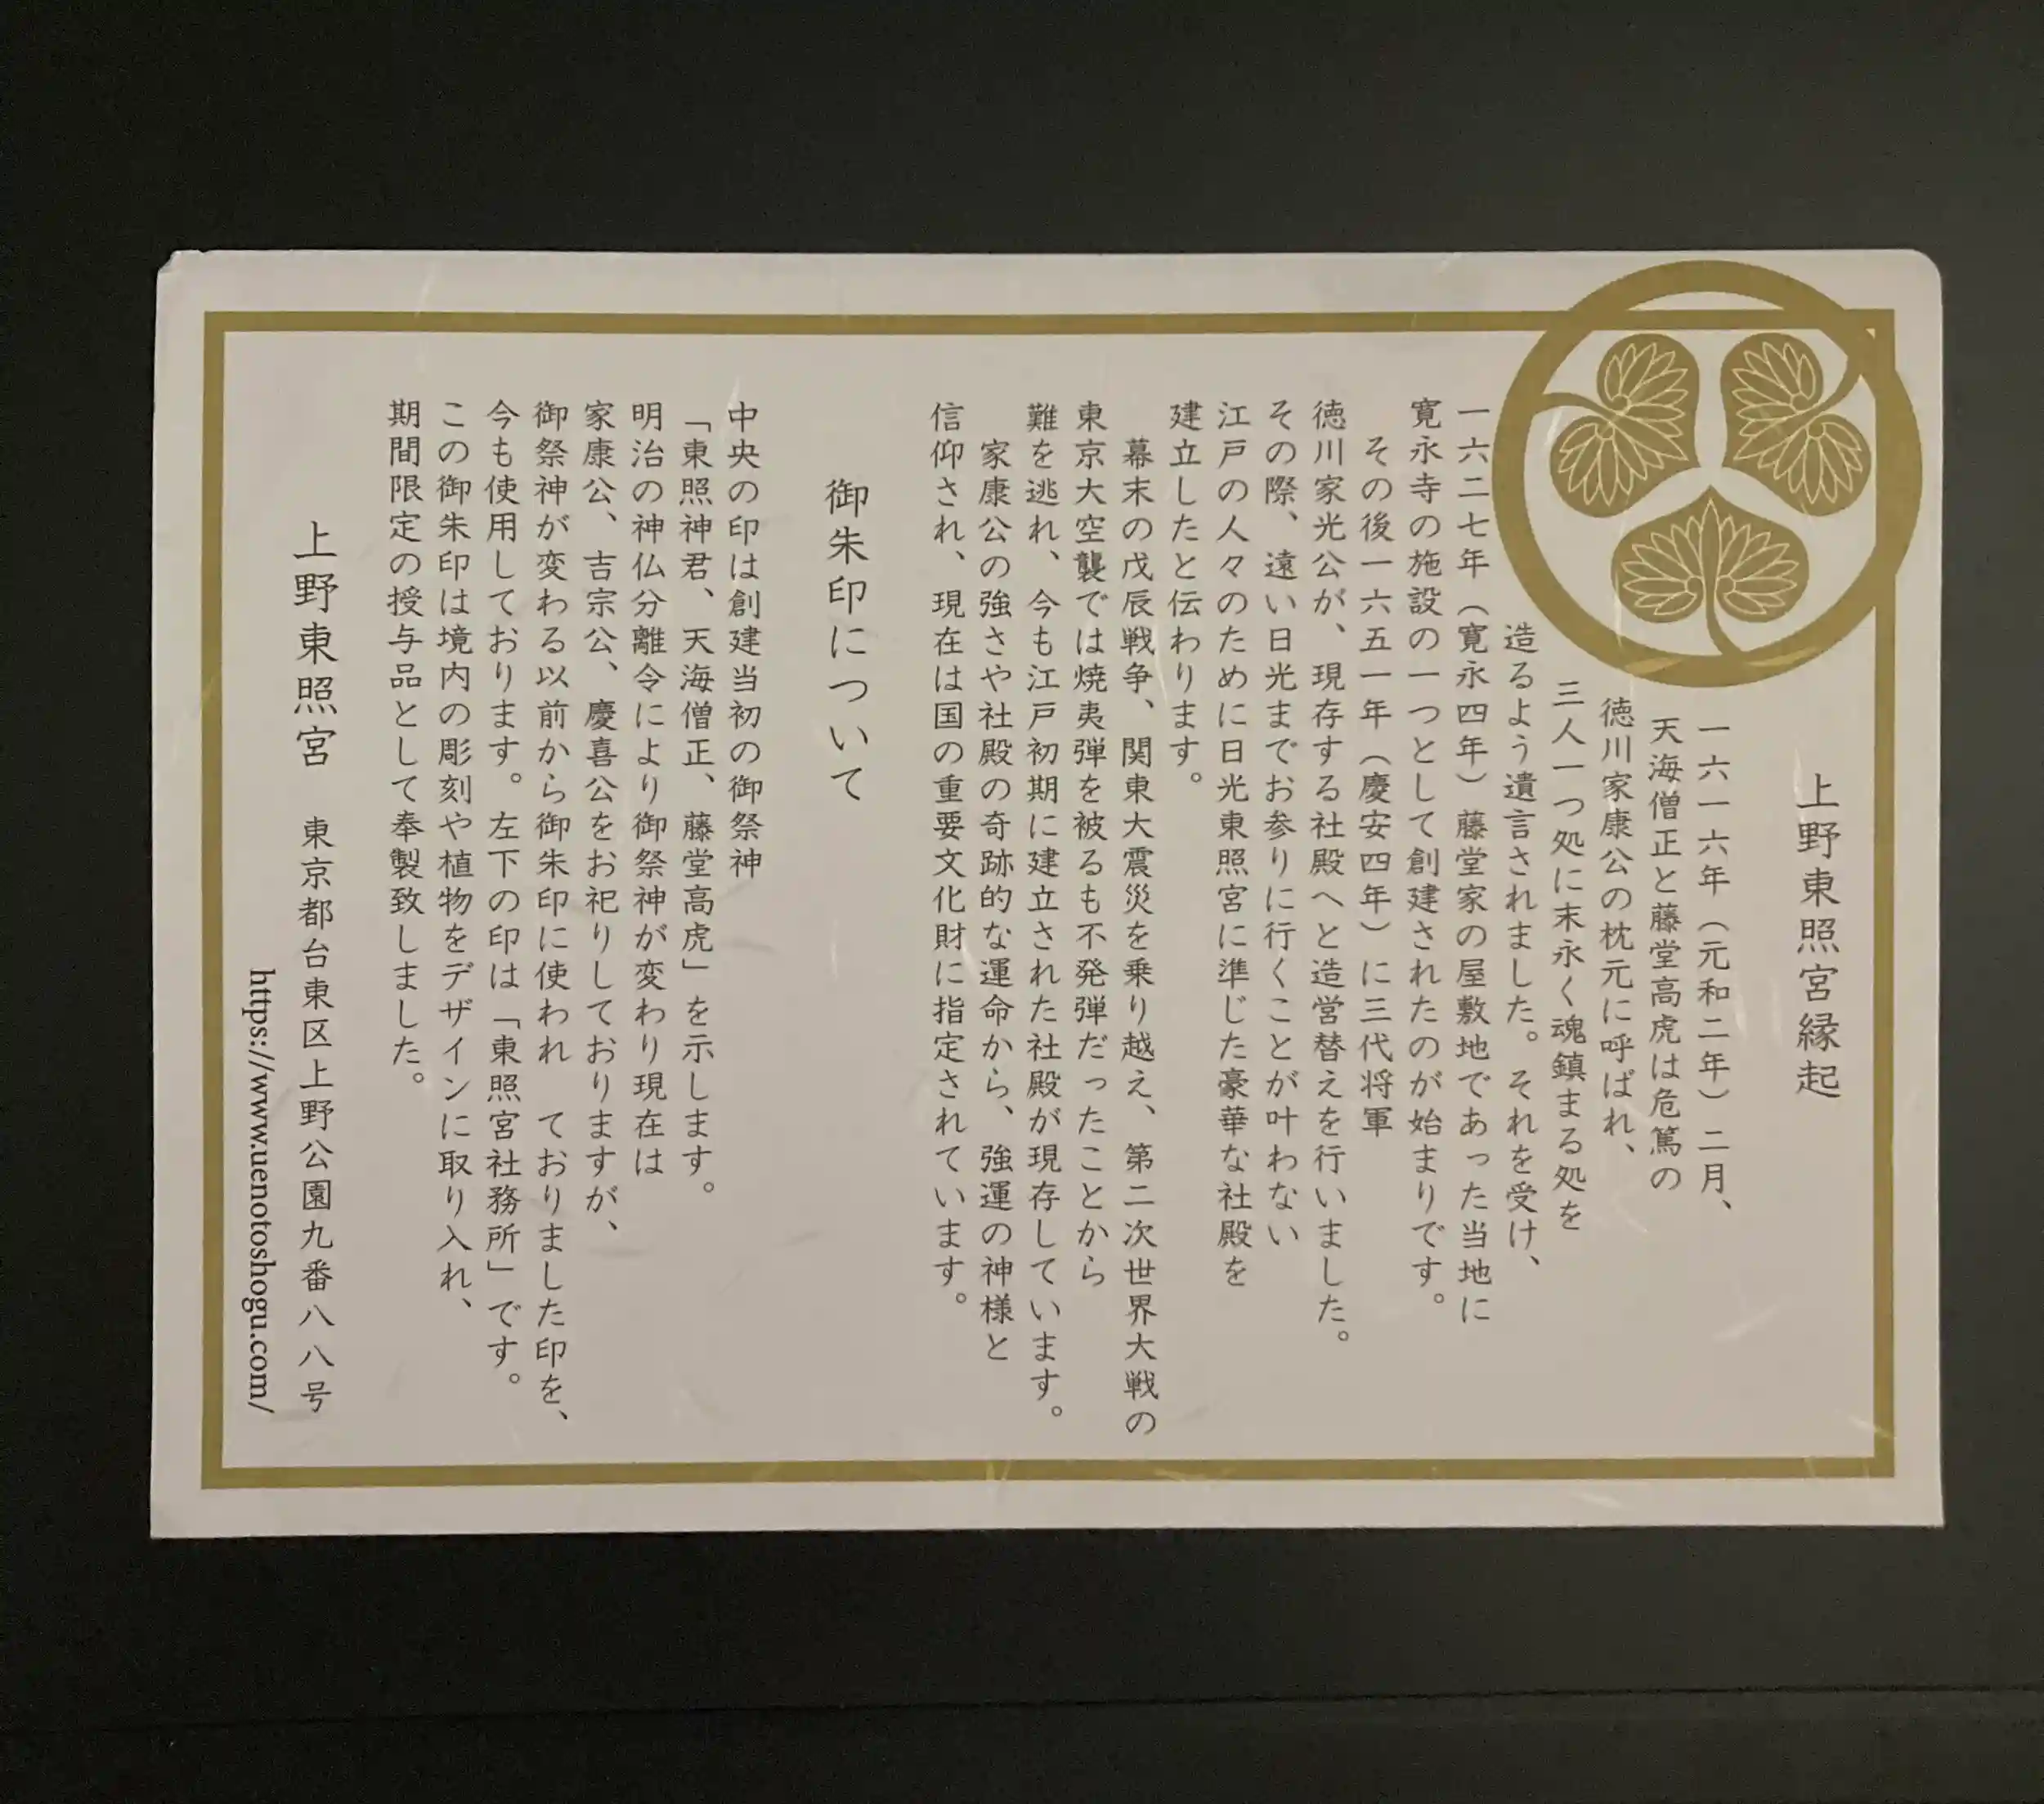 上野東照宮縁起
一六一六年（元和二年）二月、
天海僧正と藤堂高虎は危篤の
徳川家康公の枕元に呼ばれ、
三人一つ処に末永く魂鎮まる処を
造るよう遺言されました。それを受け、
一六二七年（寛永四年）藤堂家の屋敷地であった当地に
寛永寺の施設の一つとして創建されたのが始まりです。
その後一六五一年（慶安四年）に三代将軍
徳川家光公が、現存する社殿へと造営替えを行いました。
その際、遠い日光までお参りに行くことが叶わない
江戸の人々のために日光東照宮に準じた豪華な社殿を
建立したと伝わります。
幕末の戊辰戦争、関東大震災を乗り越え、第二次世界大戦の
東京大空襲では焼夷弾を被るも不発弾だったことから
難を逃れ、今も江戸初期に建立された社殿が現存しています。
家康公の強さや社殿の奇跡的な運命から、強運の神様と
信仰され、現在は国の重要文化財に指定されています。
御朱印について
中央の印は創建当初の御祭神
「東照神君、天海僧正、藤堂高虎」を示します。
明治の神仏分離令により御祭神が変わり現在は
家康公、吉宗公、慶喜公をお祀りしておりますが、
御祭神が変わる以前から御朱印に使われ　ておりました印を、
今も使用しております。左下の印は「東照宮社務所」です。
この御朱印は境内の彫刻や植物をデザインに取り入れ、
期間限定の授与品として奉製致しました。
上野東照宮　東京都台東区上野公園九番八八号
https://www.uenotoshogu.com/